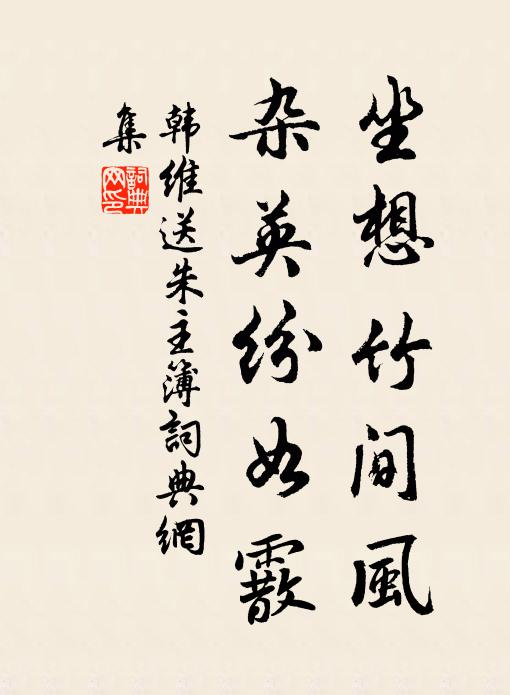 坐想竹间風
杂英纷如霰
韩维送朱主簿詞典網
集
詞典網印